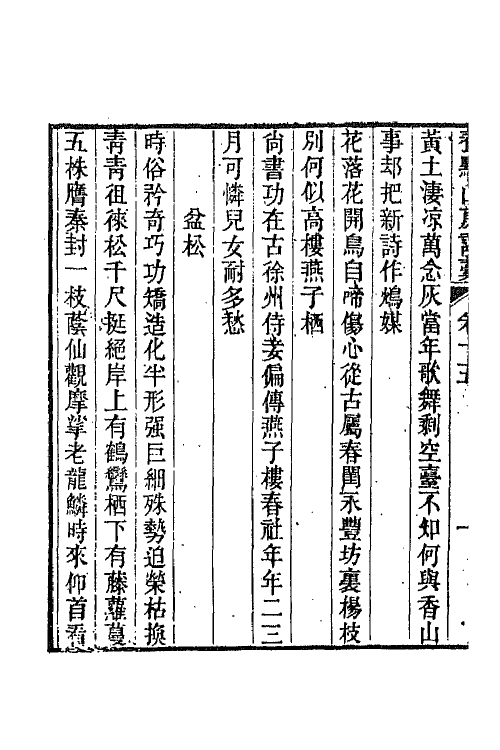 卷十五
黃土淒凉萬念灰當年歌舞剩空臺不知何與香山
事却把新詩作鴆媒
花落花開鳥自啼傷心從古屬春閨永豐坊裏楊枝
別何似高樓燕子棲
尙書功在古徐州侍妾偏傳燕子樓春社年年二三
月可憐兒女耐多愁
盆松
時俗矜奇巧功矯造化半形强巨細殊勢迫榮枯換
靑靑徂徠松千尺挺絕岸上有鶴鸞栖下有藤蘿蔓
五株膺秦封一枝蔭仙觀摩挲老龍鱗時來仰首看